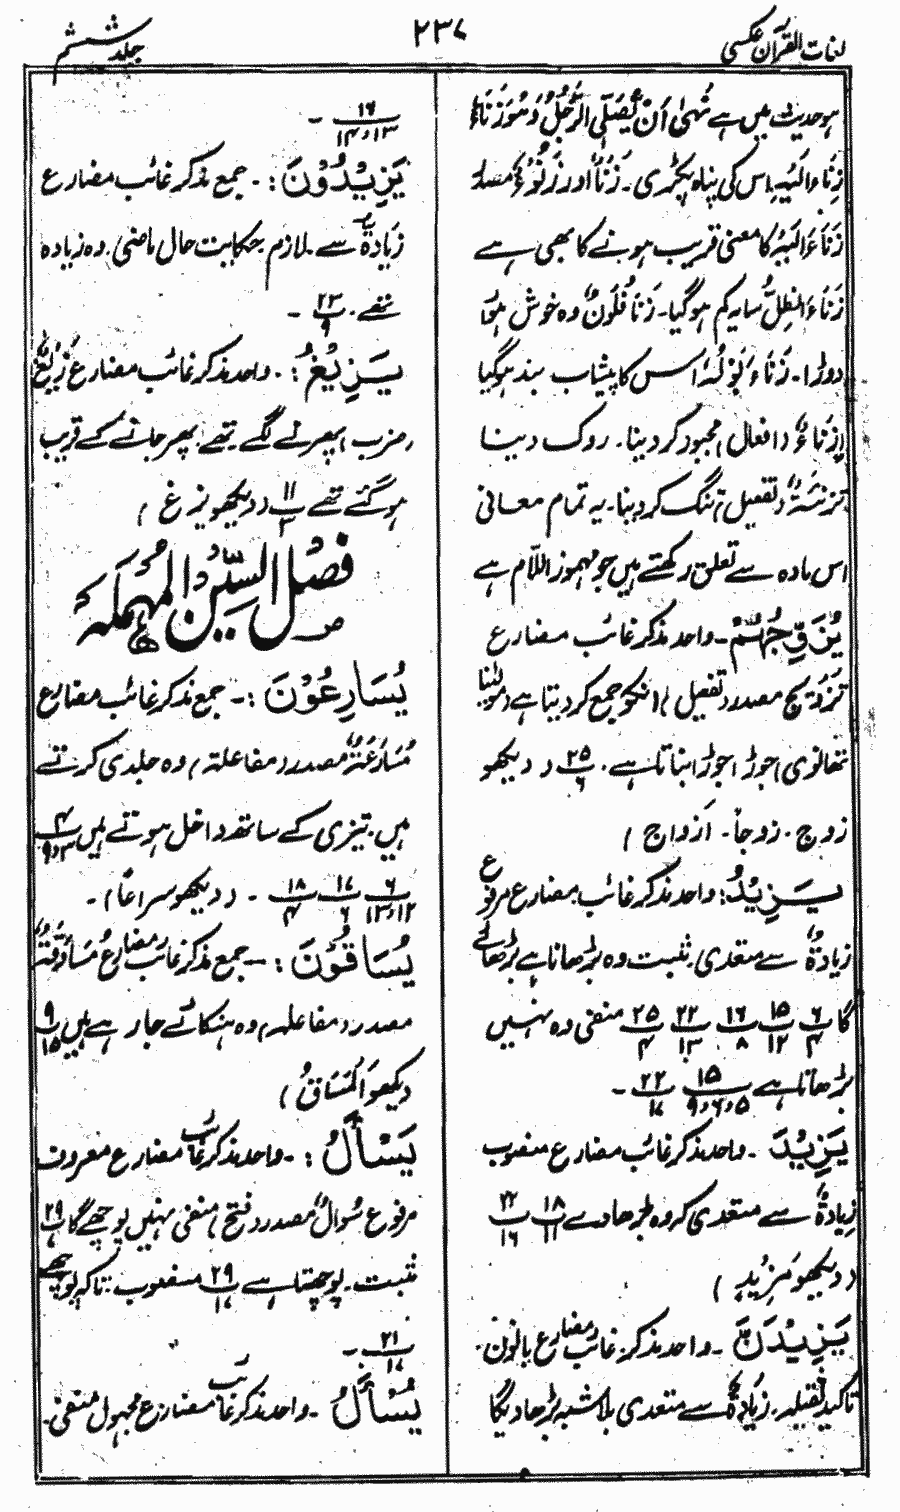 لغات القرآن عکسی
۲۳۷
جلد ششم
ہو حدیث میں ہے نُہِیَ اَنْ یُصَلِّیَ الرَّجُلُ وَہُوَ زَنَاءٌ
زَنَاءَ اِلَیْہِ اس کی پناہ پکڑی۔ زَنَأَ اور زُنُوْءٌ مصدر
زَنَاءَ اِلَیْہِ کا معنی قریب ہونے کا بھی ہے
زَنَاءَ الظِّلُّ سایہ کم ہو گیا۔ زَنَأَ فُلَانٌ وہ خوش ہوا
دوڑا۔ زَنَاءَ بَوْلُہٗ اس کا پیشاب بند ہو گیا
اِزْنَاءٌ (افعال) مجبور کر دینا۔ روک دینا
تَزْنِئَۃٌ (تفعیل) تنگ کر دینا۔ یہ تمام معانی
اس مادہ سے تعلق رکھتے ہیں جو مہموز اللام ہے
یُزَوِّجُہُمْ۔ واحد مذکر غائب مضارع
تَزْوِیْجٌ مصدر (تفعیل) انکو جمع کر دیتا ہے (مولٰنا
تھانوی) جوڑ جوڑ بناتا ہے۔ ۲۵/۶ (دیکھو
زوج۔ زوجاً۔ اَزواج)
یَزِیْدُ: واحد مذکر غائب مضارع مرفوع
زِیَادَۃٌ سے متعدی۔ مثبت وہ بڑھاتا ہے بڑھائے
گا ۶/۴ ۱۵/۱۲ ۱۶/۸ ۲۲/۱۳ ۲۵/۴ منفی وہ نہیں
بڑھاتا ہے ۱۵/۵،۶،۹ ۲۲/۱۷ ۔
یَزِیْدَ۔ واحد مذکر غائب مضارع منصوب
زِیَادَۃٌ سے متعدی کہ وہ بڑھا دے ۱۸/۱۱ ۲۲/۱۶
(دیکھو مَزِیْدٍ)
یَزِیْدَنَّ۔ واحد مذکر غائب مضارع بانون
تاکید ثقیلہ۔ زِیَادَۃٌ سے متعدی بلا شبہ بڑھا دیگا
۱۶/۱۳،۱۴ ۔
یَزِیْدُوْنَ:۔ جمع مذکر غائب مضارع
زِیَادَۃٌ سے۔ لازم بحکایت حال ماضی۔ وہ زیادہ
تھے۔ ۲۳/۹ ۔
یَزِیْغُ:۔ واحد مذکر غائب مضارع زَیْغٌ
(ضرب) پھرنے لگے تھے۔ پھر جانے کے قریب
ہو گئے تھے ۱۱/۳ (دیکھو زیغ)
فصل السین المہملہ
یُسَارِعُوْنَ:۔ جمع مذکر غائب مضارع
مُسَارَعَۃٌ مصدر (مفاعلۃ) وہ جلدی کرتے
ہیں۔ تیزی کے ساتھ داخل ہوتے ہیں ۴/۳،۹
۶/۱۲،۱۳ ۱۷/۶ ۱۸/۴ ۔ (دیکھو سراعًا)۔
یُسَاقُوْنَ:۔ جمع مذکر غائب مضارع مُسَاوَقَۃٌ
مصدر (مفاعلہ) وہ ہنکائے جا رہے ہیں ۹/۱۵
(دیکھو اَلْمَسَاقُ)
یَسْأَلُ:۔ واحد مذکر غائب مضارع معروف
مرفوع سُوَالٌ مصدر (فتح) منفی نہیں پوچھے گا ۲۹/۷
مثبت۔ پوچھتا ہے ۲۹/۱۷ منصوب۔ تاکہ پوچھے
۲۱/۱۷ ۔
یُسْأَلُ۔ واحد مذکر غائب مضارع مجہول منفی۔